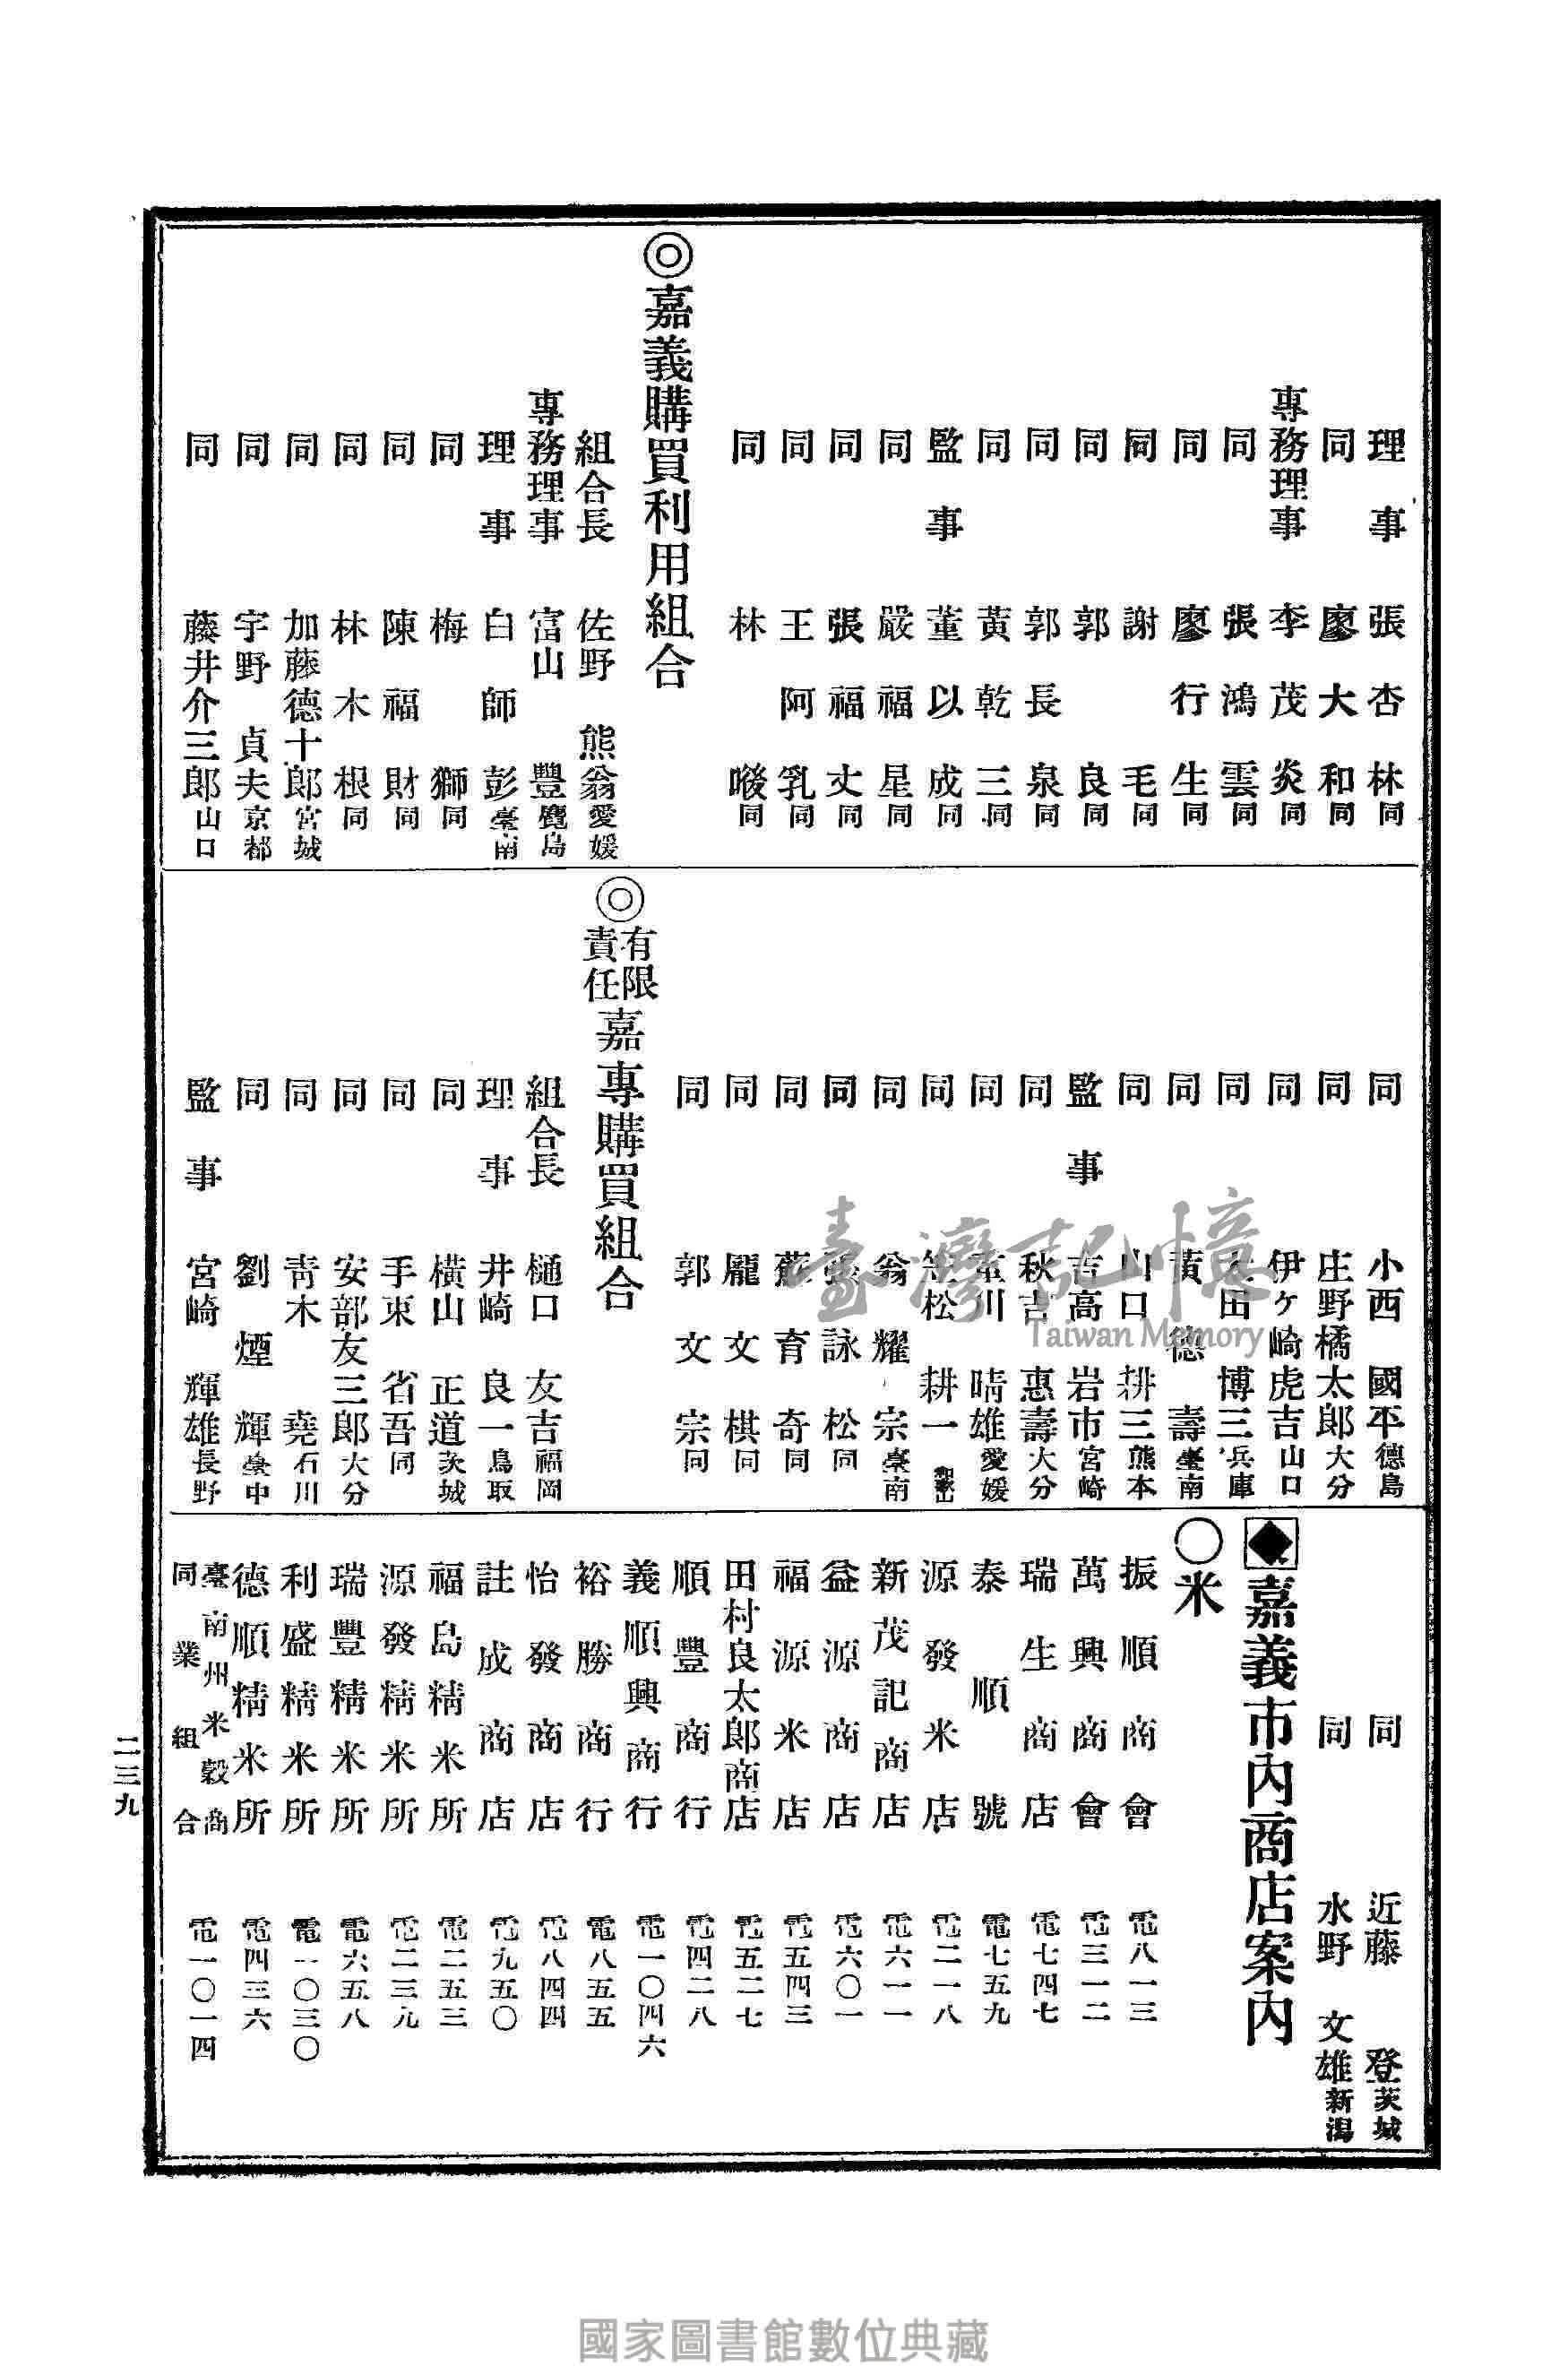 理事 張杏林 同
同 廖大和 同
專務理事 李茂炎 同
同 張鴻雲 同
同 廖行生 同
同 謝毛 同
同 郭良 同
同 郭長泉 同
同 黃乾三 同
監事 董以成 同
同 嚴福星 同
同 張福丈 同
同 王阿乳 同
同 林 同
◎嘉義購買利用組合
組合長 佐野熊翁 愛媛
專務理事 富山豐 鹿島
理事 白師彭 臺南
同 梅獅 同
同 陳福財 同
同 林木根 同
同 加藤德十郎 宮城
同 宇野貞夫 京都
同 藤井介三郎 山口
同 小西國平 德島
同 庄野橘太郎 大分
同 伊ケ崎虎吉 山口
同 太田博三 兵庫
同 黃德壽 臺南
同 山口耕三 熊本
監事 吉高岩市 宮崎
同 秋吉惠壽 大分
同 重川晴雄 愛媛
同 笠松耕一 和歌山
同 翁耀宗 臺南
同 張詠松 同
同 蘇育奇 同
同 龐文棋 同
同 郭文宗 同
◎有限責任嘉專購買組合
組合長 樋口友吉 福岡
理事 井崎良一 鳥取
同 橫山正道 茨城
同 手束省吾 同
同 安部友三郎 大分
同 靑木堯 石川
同 劉煙輝 臺中
監事 宮崎輝雄 長野
同 近藤登 茨城
同 水野文雄 新潟
◆嘉義市內商店案內
○米
振順商會 電八一三
萬興商會 電三一二
瑞生商店 電七四七
泰順號 電七五九
源發米店 電二一八
新茂記商店 電六一一
益源商店 電六〇一
福源米店 電五四三
田村良太郎商店 電五二七
順豐商行 電四二八
義順興商行 電一〇四六
裕勝商行 電八五五
怡發商店 電八四四
註成商店 電九五〇
福島精米所 電二五三
源發精米所 電二三九
瑞豐精米所 電六五八
利盛精米所 電一〇三〇
德順精米所 電四三六
臺南州米穀商同業組合 電一〇一四
二三九
臺灣記憶
Taiwan Memory
國家圖書館數位典藏